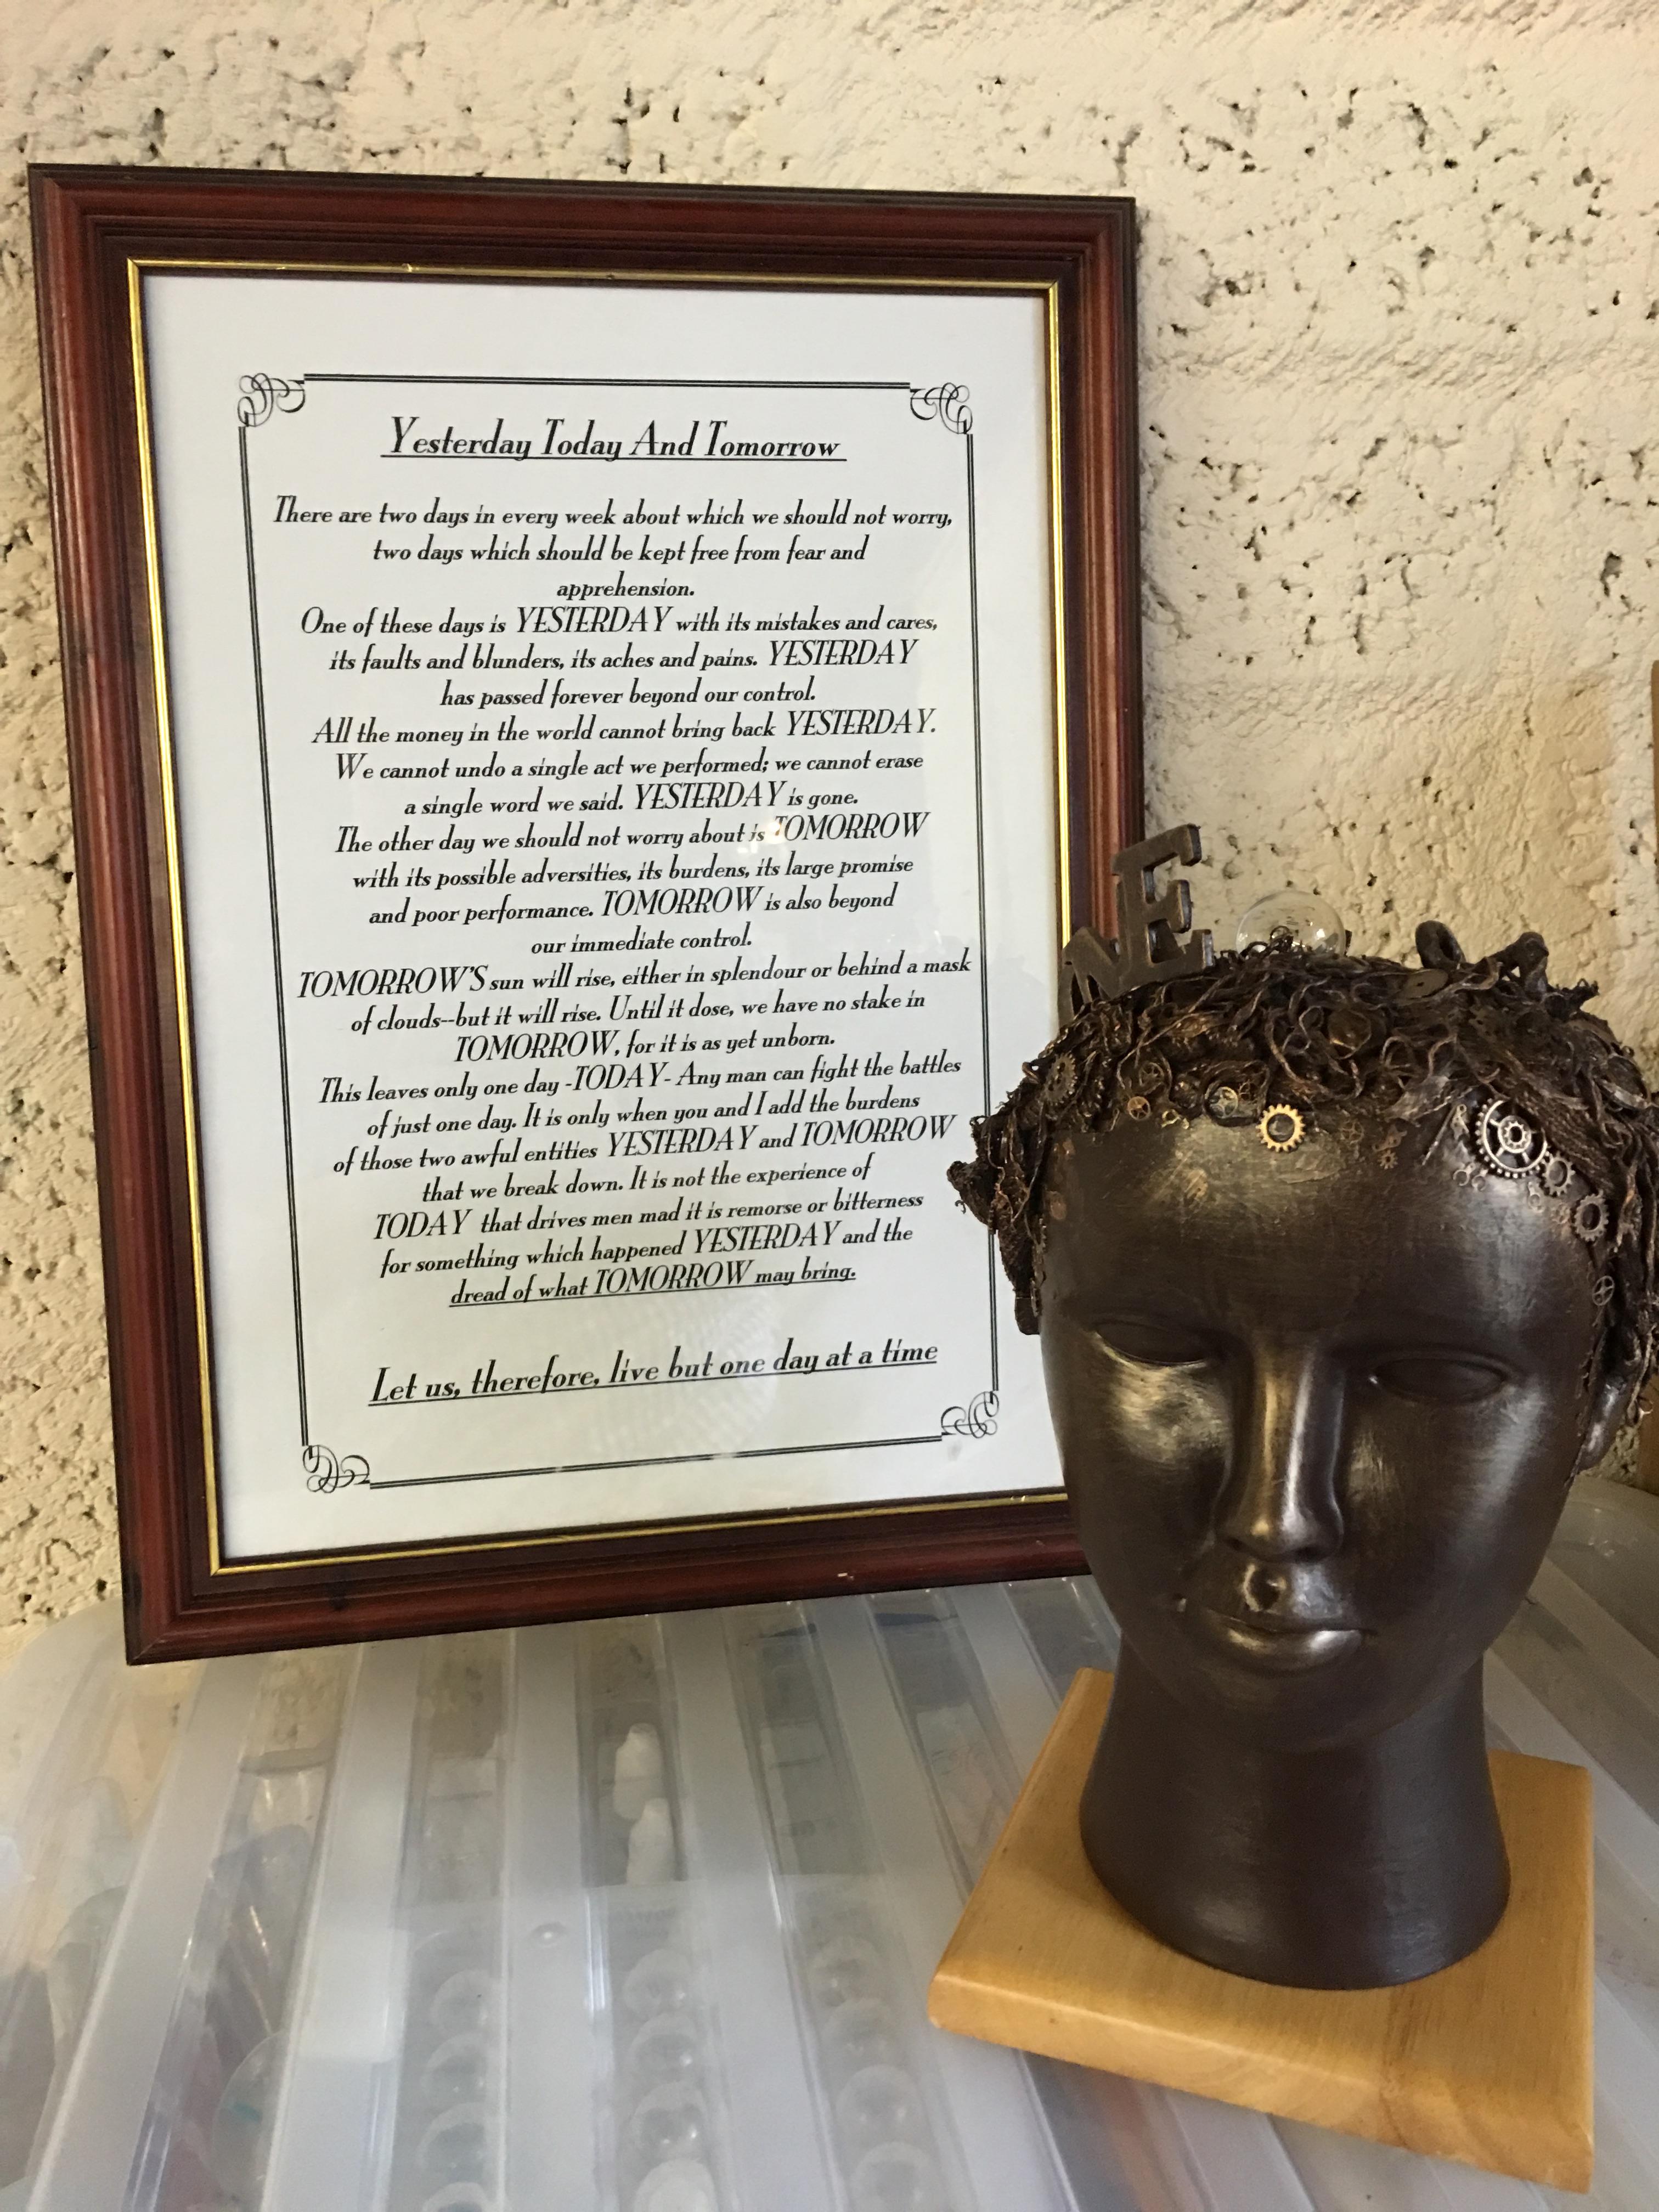 Yesterday Today And Tomorrow
There are two days in every week about which we should not worry,
two days which should be kept free from fear and
apprehension.
One of these days is YESTERDAY with its mistakes and cares,
its faults and blunders, its aches and pains. YESTERDAY
has passed forever beyond our control.
All the money in the world cannot bring back YESTERDAY.
We cannot undo a single act we performed; we cannot erase
a single word we said. YESTERDAY is gone.
The other day we should not worry about is TOMORROW
with its possible adversities, its burdens, its large promise
and poor performance. TOMORROW is also beyond
our immediate control.
TOMORROW'S sun will rise, either in splendour or behind a mask
of clouds--but it will rise. Until it dose, we have no stake in
TOMORROW, for it is as yet unborn.
This leaves only one day -TODAY- Any man can fight the battles
of just one day. It is only when you and I add the burdens
of those two awful entities YESTERDAY and TOMORROW
that we break down. It is not the experience of
TODAY that drives men mad it is remorse or bitterness
for something which happened YESTERDAY and the
dread of what TOMORROW may bring.
Let us, therefore, live but one day at a time